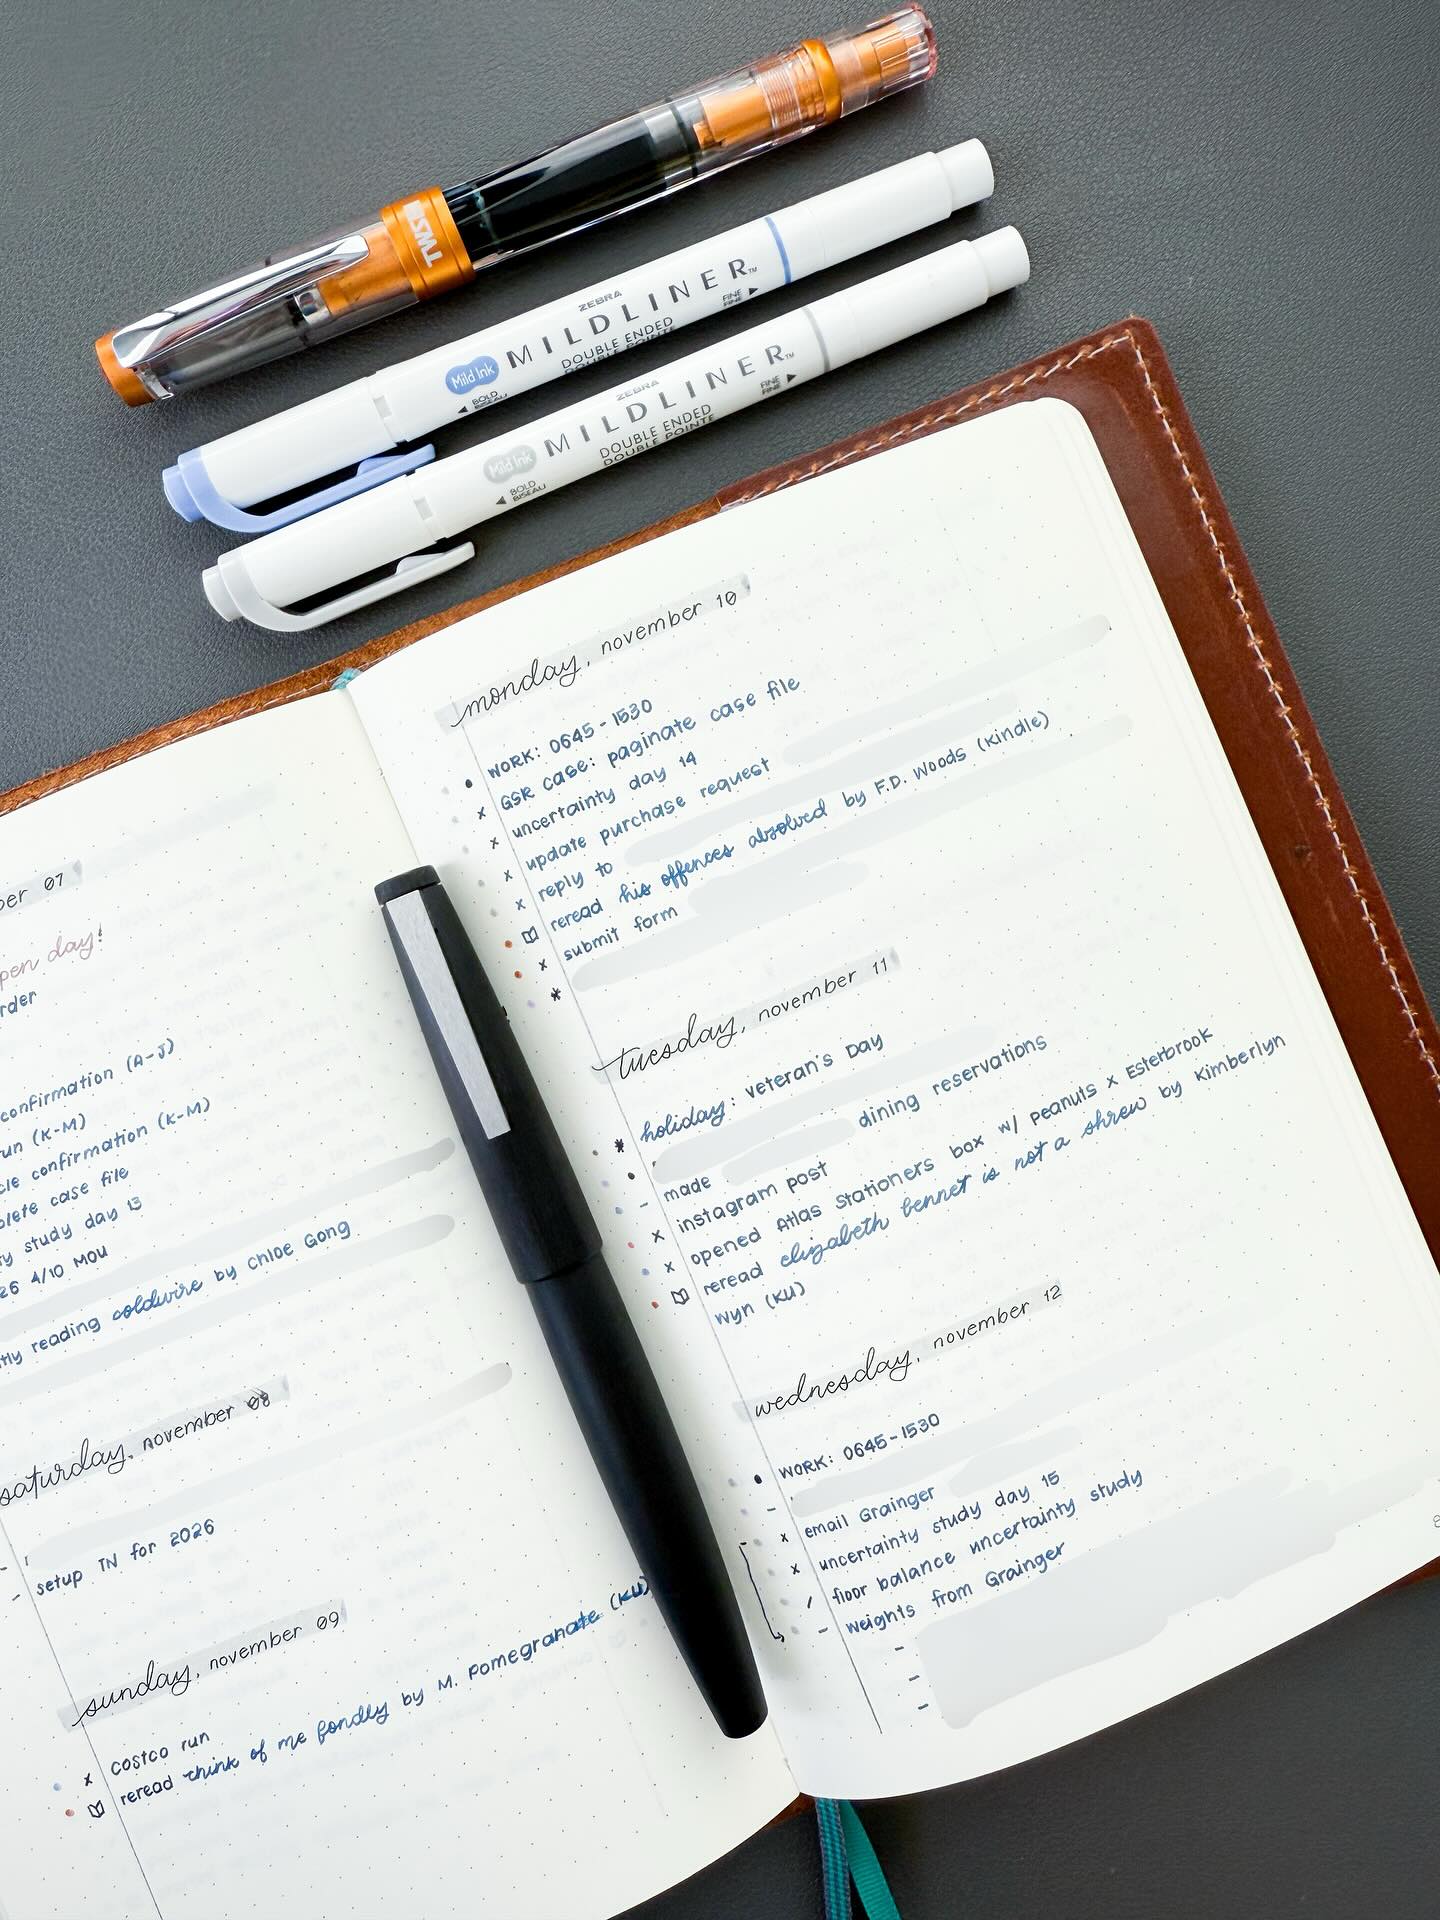 TWSBI
ZEBRA
MILDLINER™
Mild Ink
DOUBLE ENDED
DOUBLE POINTE
BOLD
BISEAU
FINE
FINE
ZEBRA
MILDLINER™
Mild Ink
DOUBLE ENDED
DOUBLE POINTE
BOLD
BISEAU
FINE
FINE
07
pen day!
confirmation (A-J)
(K-M)
confirmation (K-M)
case file
study day 13
4/10 MOU
reading coldwire by Chloe Gong
saturday, november 08
setup TN for 2026
sunday, november 09
x costco run
reread think of me fondly by M. Pomegranate (KU)
monday, november 10
WORK: 0645-1530
x GSR case: paginate case file
x uncertainty day 14
x update purchase request
x reply to
reread his offences absolved by F.D. Woods (Kindle)
x submit form
tuesday, november 11
* holiday: Veteran's Day
- made dining reservations
x instagram post
x opened Atlas Stationers box w/ Peanuts x Esterbrook
reread elizabeth bennet is not a shrew by Kimberlyn
Wyn (KU)
wednesday, november 12
WORK: 0645-1530
x email Grainger
x uncertainty study day 15
/ floor balance uncertainty study
- weights from Grainger